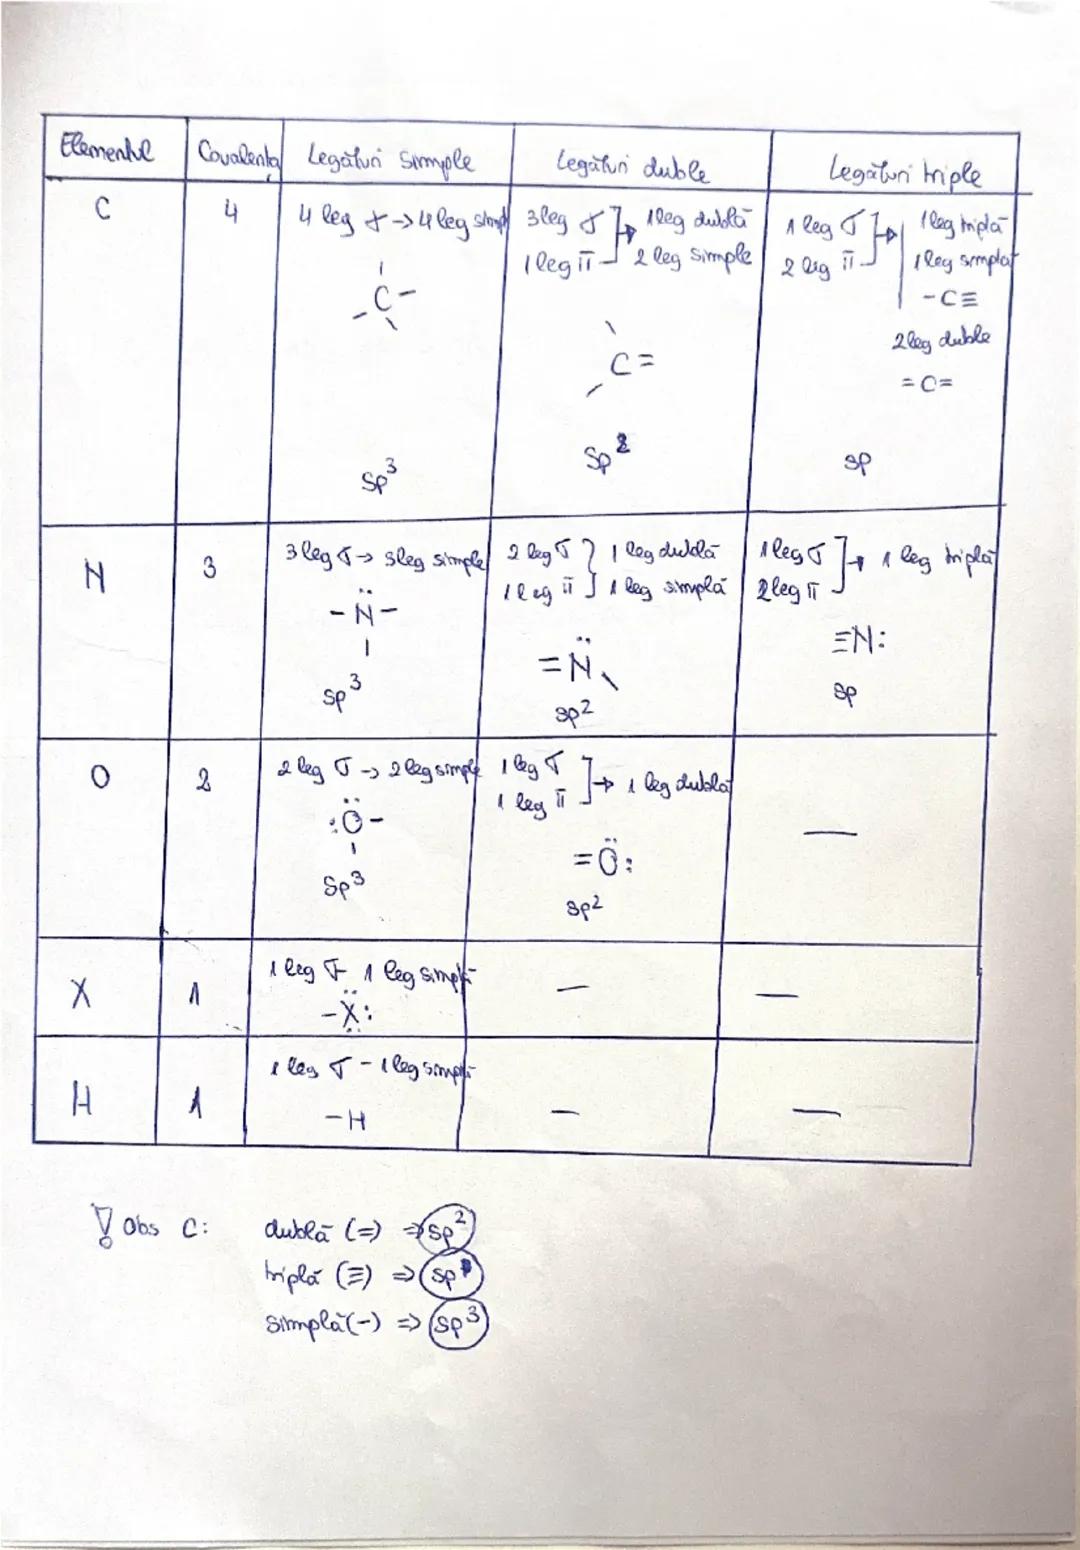 Elementul Covalența Legături simple Legături duble Legături triple
C 4
4 leg σ → 4 leg simpl
C
sp³
3 leg σ → 1 leg dublă
1 leg π 2 leg simple
C =
sp²
1 leg σ → 1 leg triplă
2 leg π 1 leg simplă
- C ≡
2 leg duble
= C =
sp
N 3
3 leg σ → 3 leg simple
- N̈ -
sp³
2 leg σ } 1 leg dublă
1 leg π 1 leg simplă
= N̈
sp²
1 leg σ → 1 leg triplă
2 leg π
≡N:
sp
O 2
2 leg σ → 2 leg simple
:Ö -
sp³
1 leg σ → 1 leg dublă
1 leg π
= Ö:
sp²
—
X 1
1 leg σ - 1 leg simplă
- Ẍ:
—
—
H 1
1 leg σ - 1 leg simplă
- H
—
—
! Obs C: dublă (=) ⇒ sp²
triplă (≡) ⇒ sp
simplă (-) ⇒ sp³